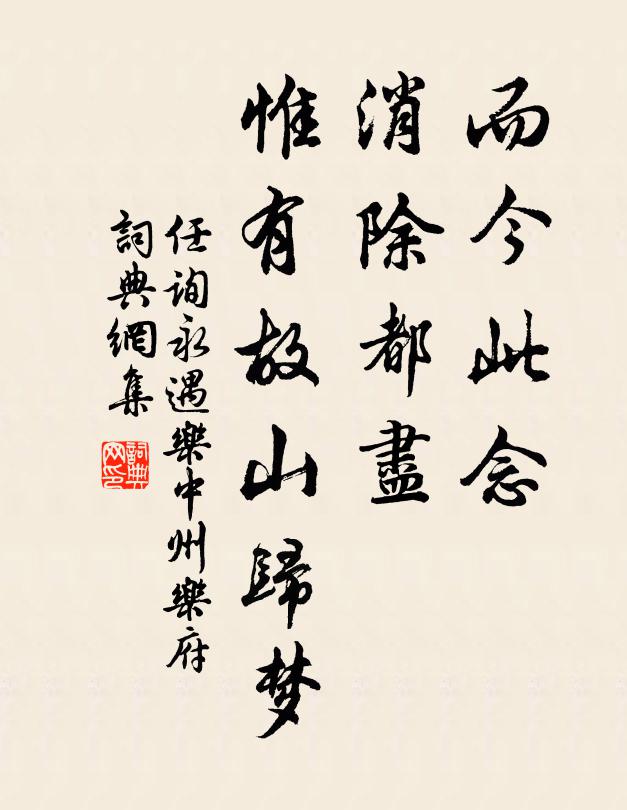 而今此念
消除都盡
惟有故山歸梦
任詢永遇樂中州樂府
詞典網集
詞典網印